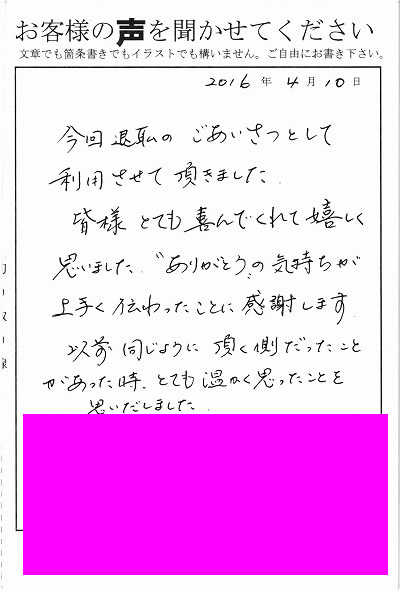 お客様の声を聞かせてください
文章でも箇条書きでもイラストでも構いません。ご自由にお書き下さい。
2016年4月10日
今回退職の ごあいさつとして
利用させて頂きました.
皆様 とても喜んでくれて嬉しく
思いました. "ありがとう"の気持ちが
上手く伝わったことに感謝します.
以前 同じように 頂く側だったこと
があった時、とても温かく思ったことを
思いだしました.